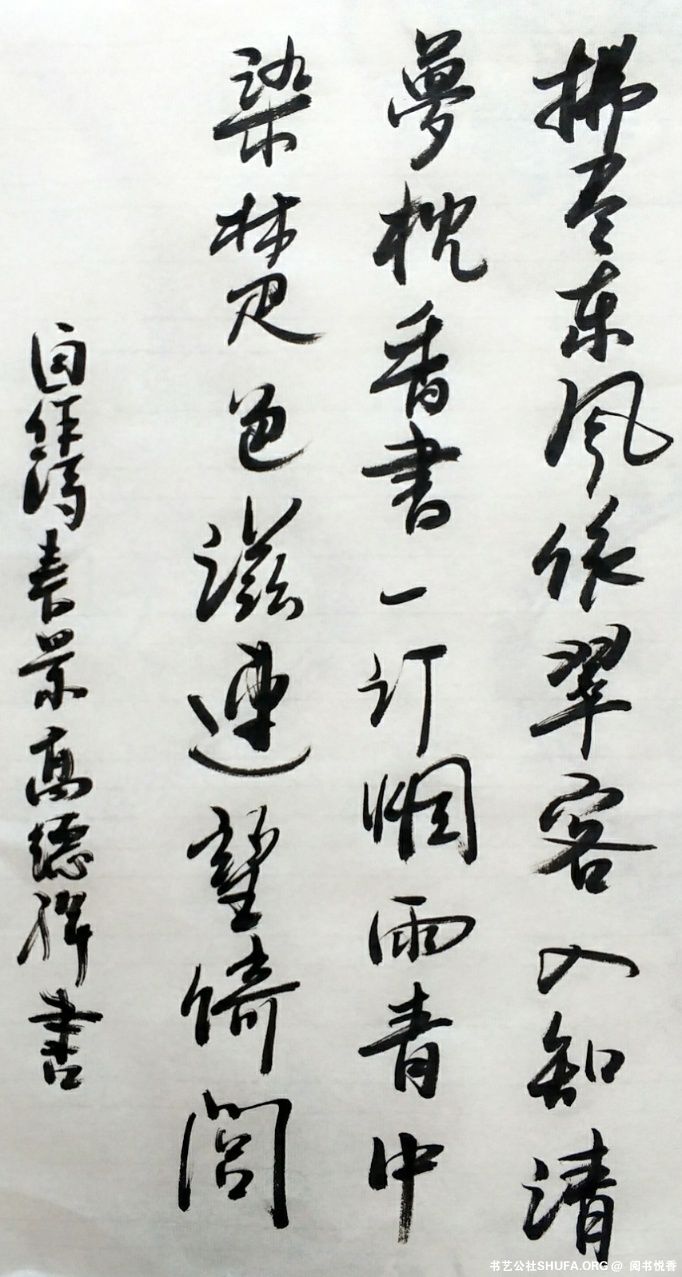 拂尽东风依翠客入知清
梦枕香书一订烟雨青中
染楚色滋连望倚闾
自作诗春景高德辉书
书艺公社SHUFA.ORG @ 阅书悦香